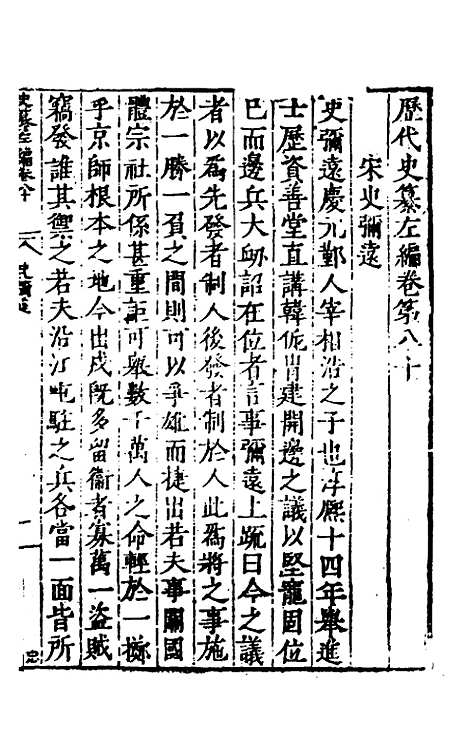 歷代史纂左編卷第八十
宋史彌遠
史彌遠慶元鄞人宰相浩之子也淳熙十四年舉進
士歷資善堂直講韓侂冑建開邊之議以堅寵固位
已而邊兵大衂詔在位者言事彌遠上疏曰今之議
者以爲先發者制人後發者制於人此爲將之事施
於一勝一負之間則可以爭雄而捷出若夫事關國
體宗社所係甚重詎可舉數千萬人之命輕於一擲
乎京師根本之地今出戍旣多留衞者寡萬一盜賊
竊發誰其禦之若夫沿江屯駐之兵各當一面皆所
史纂左編卷八十
史彌遠
一